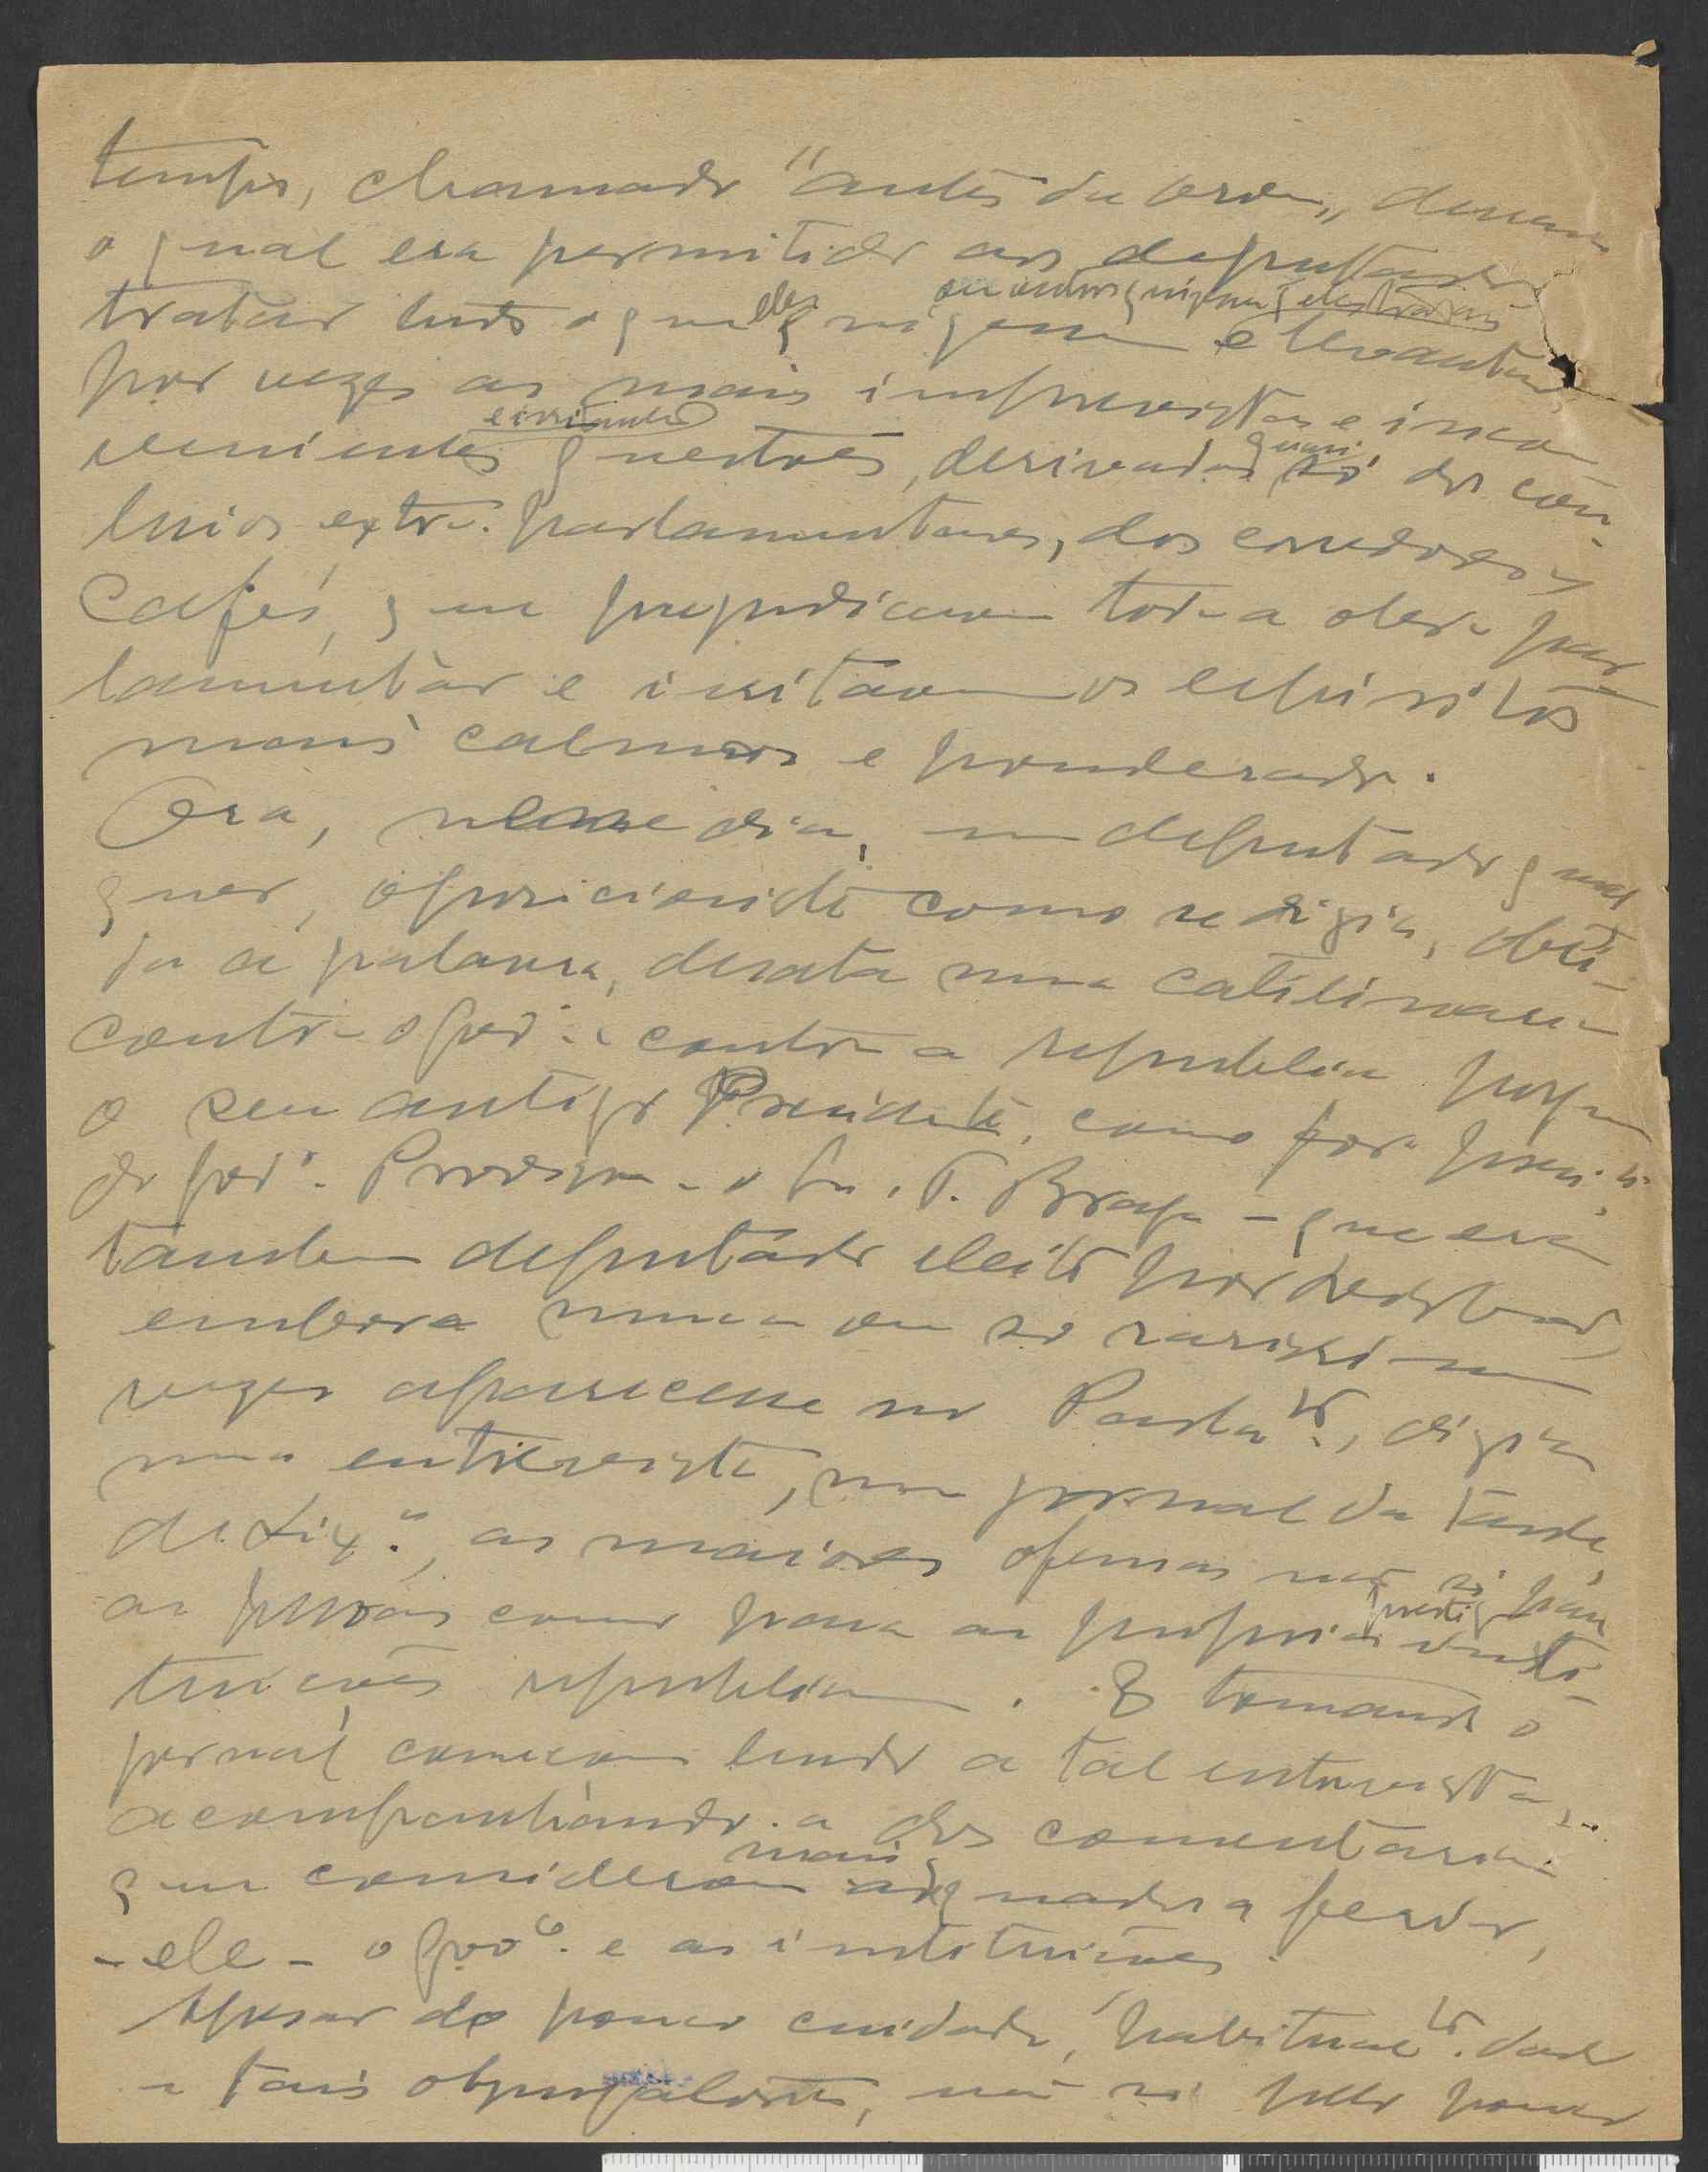 tempo, chamado "antes da ordem", durante
o qual era permitido aos deputados
eles ou outros quizessem
tratar tudo o que quizessem e levantar
por vezes as mais imprevistas e incon
e irritantes quasi
venientes questões, derivadas só dos con-
luios extra-parlamentares, dos corredores e
Cafés, que prejudicavam toda a obra par
lamentar e irritavam os espiritos
mais calmos e ponderados.
Ora, nesse dia, um deputado qual
quer, oposicionista como se dizia, obti-
da a palavra, desata numa catilinaria
contra o gov.º e contra a republica porque
o seu antigo Presidente, como fora presi.te
do gov.º Provisorio - o Sr. T. Braga - que era
tambem deputado eleito por Lisboa,
embora nunca ou só rarissimas
vezes aparecesse no Parla.to, dizia
numa entrevista, num jornal da tarde,
de Lix.ª, as maiores ofensas não só para
prestig
as pessoas como para as proprias insti-
tuições republicanas. E tomando o
jornal começou lendo a tal entrevista,
acompanhando-a dos comentarios
mais
que considerou adequados a ferir,
- ele - o gov.º e as instituições.
Apesar do pouco cuidado, habitual.te dado
a tais objurgatorias, não só pelo pouco